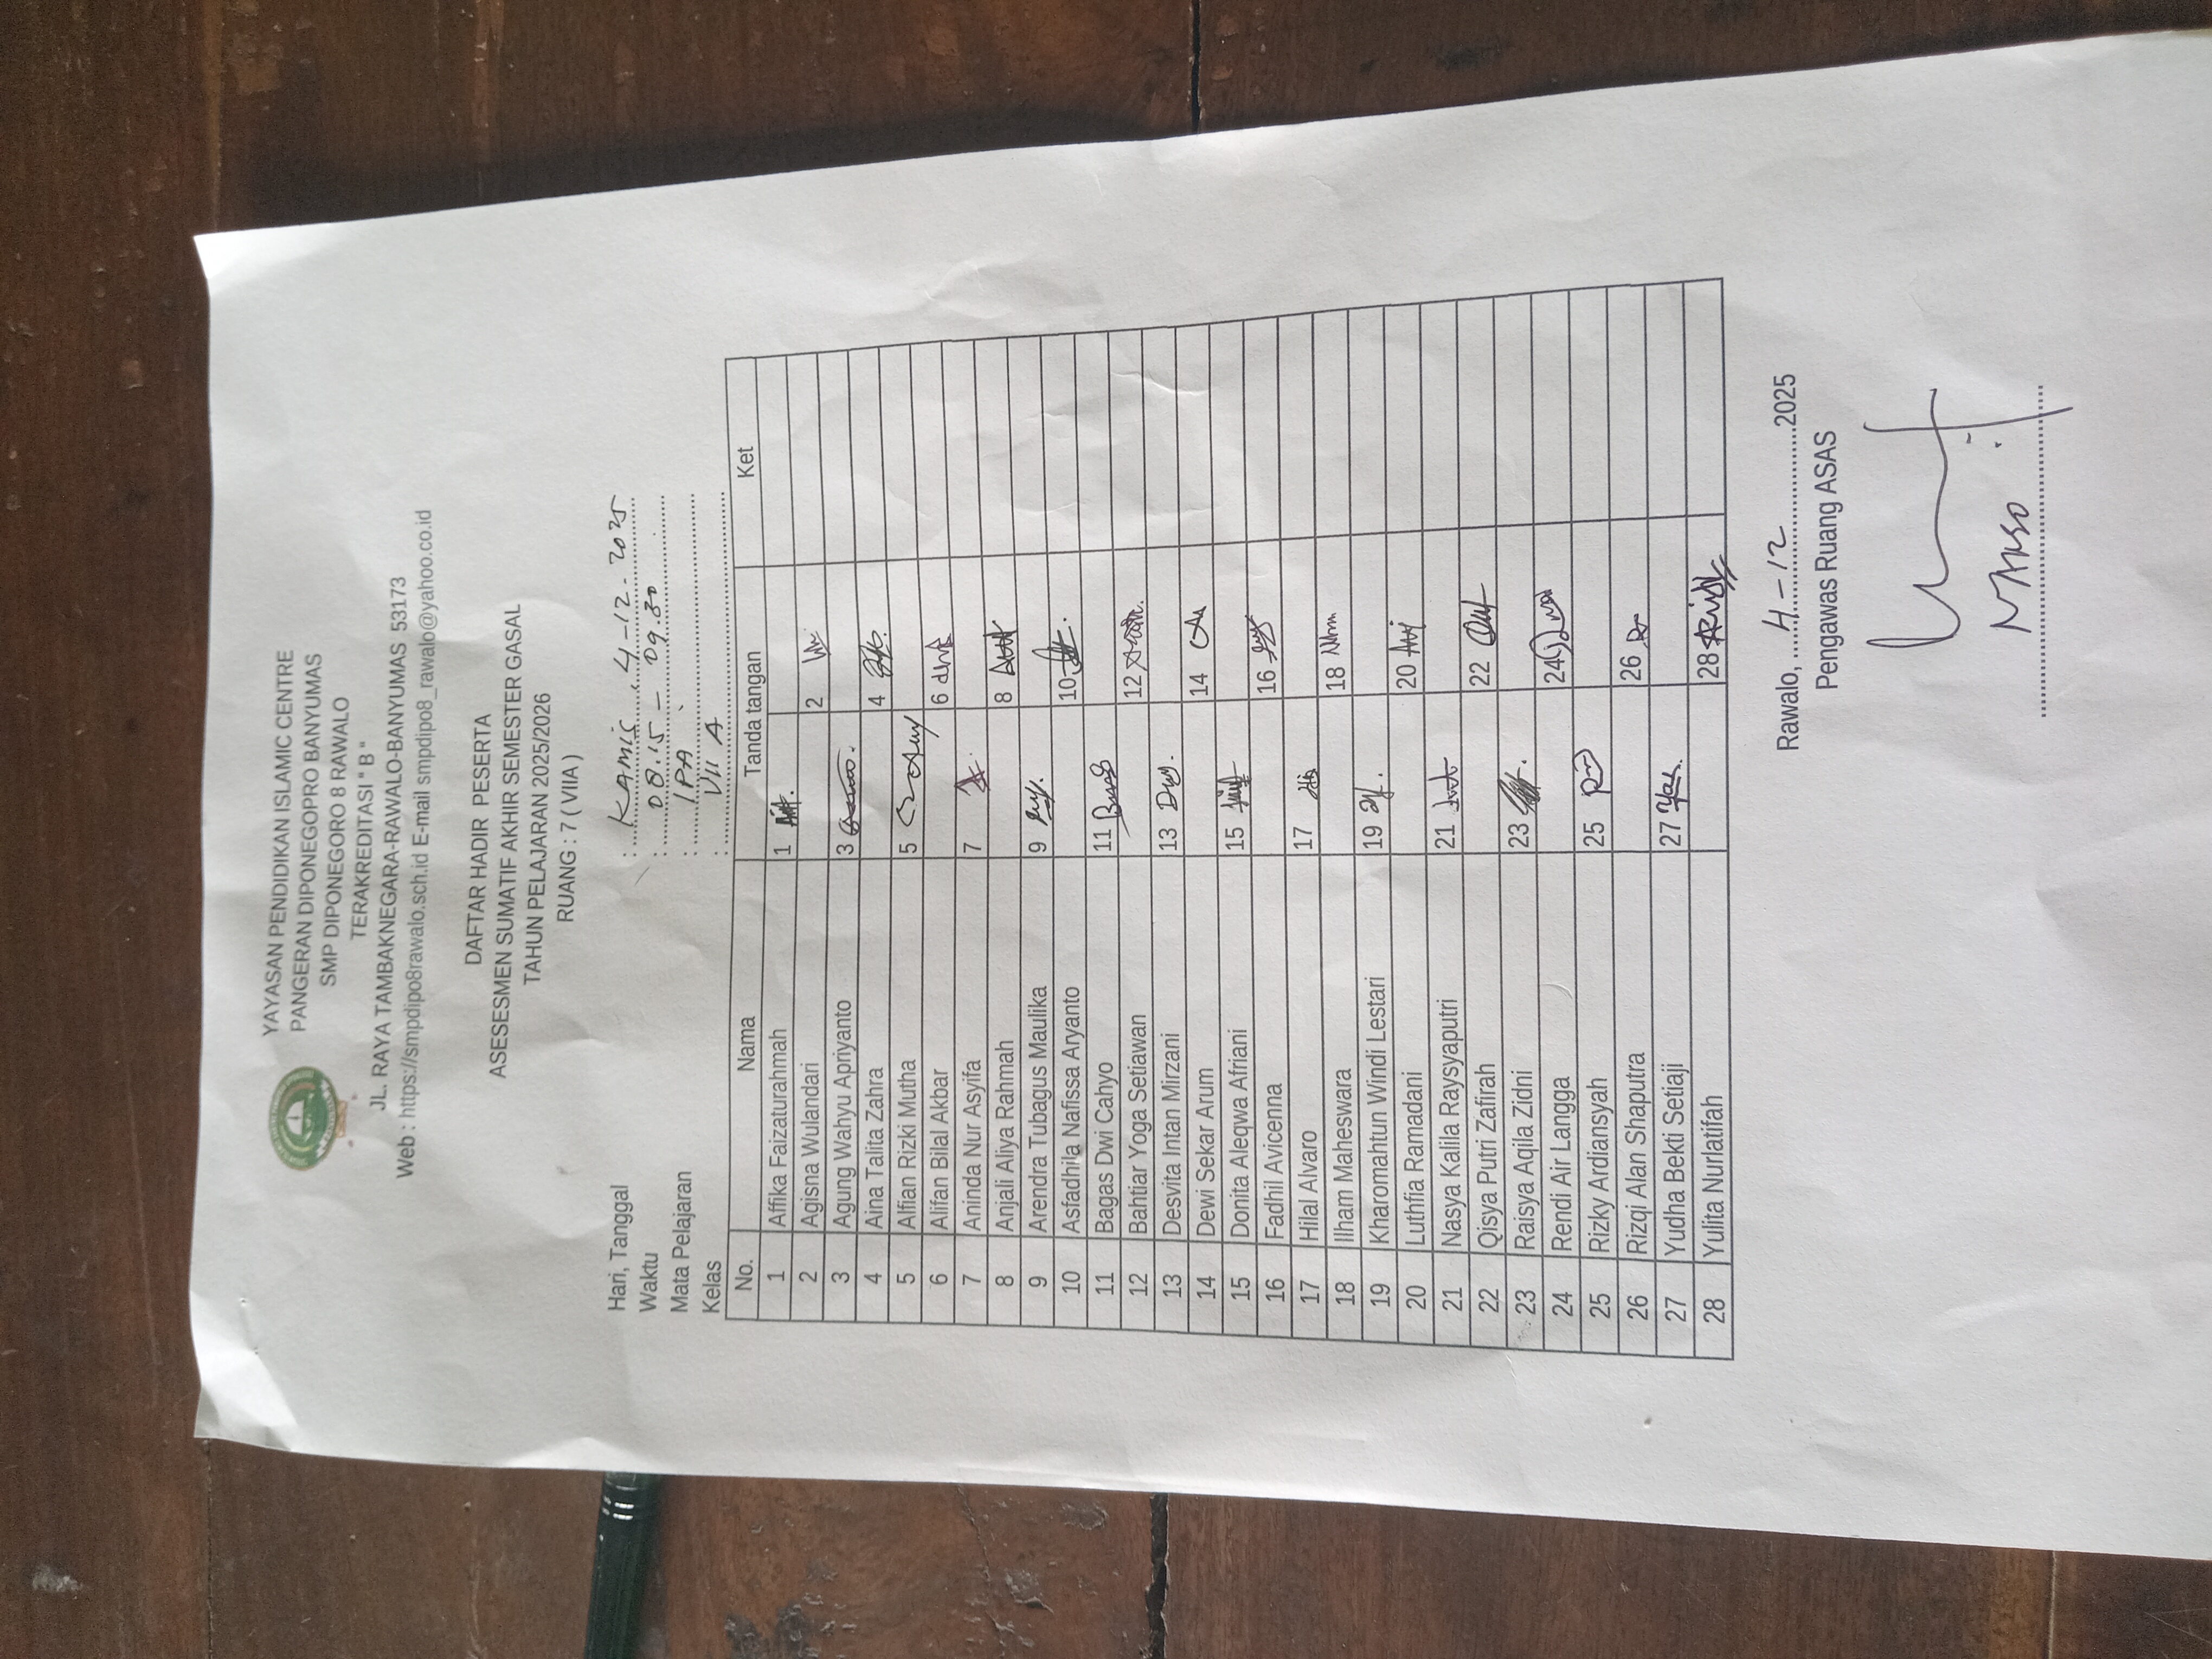 YAYASAN PENDIDIKAN ISLAMIC CENTRE
PANGERAN DIPONEGOPRO BANYUMAS
SMP DIPONEGORO 8 RAWALO
TERAKREDITASI " B "
JL. RAYA TAMBAKNEGARA-RAWALO-BANYUMAS 53173
Web : https://smpdipo8rawalo.sch.id E-mail smpdipo8_rawalo@yahoo.co.id
DAFTAR HADIR PESERTA
ASESESMEN SUMATIF AKHIR SEMESTER GASAL
TAHUN PELAJARAN 2025/2026
RUANG : 7 ( VIIA )
Hari, Tanggal : KAMIS, 4-12-2025
Waktu : 08.15 - 09.30
Mata Pelajaran : IPA
Kelas : VII A
No. Nama Tanda tangan Ket
1 Affika Faizaturahmah 1
2 Agisna Wulandari 2
3 Agung Wahyu Apriyanto 3
4 Aina Talita Zahra 4
5 Alfian Rizki Mutha 5
6 Alifan Bilal Akbar 6
7 Aninda Nur Asyifa 7
8 Anjali Aliya Rahmah 8
9 Arendra Tubagus Maulika 9
10 Asfadhila Nafissa Aryanto 10
11 Bagas Dwi Cahyo 11
12 Bahtiar Yoga Setiawan 12
13 Desvita Intan Mirzani 13
14 Dewi Sekar Arum 14
15 Donita Aleqwa Afriani 15
16 Fadhil Avicenna 16
17 Hilal Alvaro 17
18 Ilham Maheswara 18
19 Kharomahtun Windi Lestari 19
20 Luthfia Ramadani 20
21 Nasya Kalila Raysyaputri 21
22 Qisya Putri Zafirah 22
23 Raisya Aqila Zidni 23
24 Rendi Air Langga 24
25 Rizky Ardiansyah 25
26 Rizqi Alan Shaputra 26
27 Yudha Bekti Setiaji 27
28 Yulita Nurlatifah 28
Rawalo, 4-12 2025
Pengawas Ruang ASAS